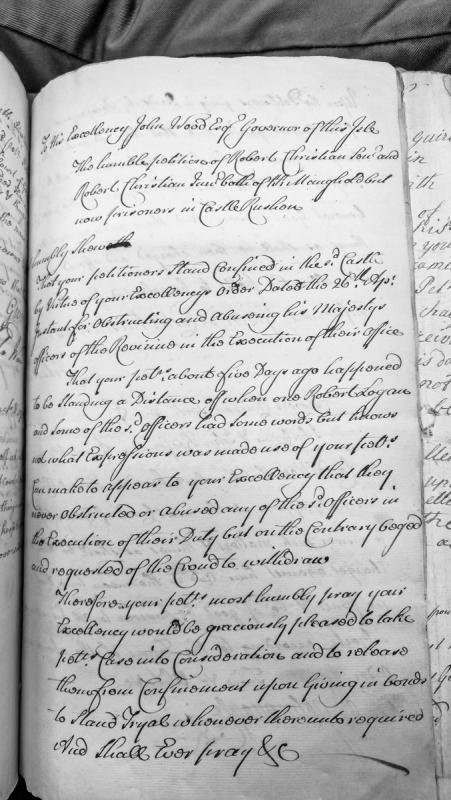 To his Excellency John Wood Esqr. Governor of this Isle
The humble petition of Robert Christian Senr. and
Robert Christian Junr. both of Kk Maughold but
now prisoners in Castle Rushen
humbly Sheweth
That your petitioners Stand Confined in the sd. Castle
by Virtue of your Excellencys Order Dated the 26th Apr.
Instant for Obstructing and Abusing his Majestys
officers of the Revinue in the Execution of their Office
That your petrs. about five Days ago happened
to be Standing a Distance off when one Robert Logan
and some of the sd. officers had some words but knows
not what Expressions was made use of your petrs.
Can make to appear to your Excellency that they
never Obstructed or abused any of the sd. Officers in
the Execution of their Duty but on the Contrary beged
and requested of the Croud to withdraw
Therefore your petrs. most humbly pray your
Excellency would be graciously pleased to take
petrs. Case into Consideration and to release
them from Confinement upon Giving in bonds
to Stand Tryal whenever thereunto required
And Shall Ever pray &C